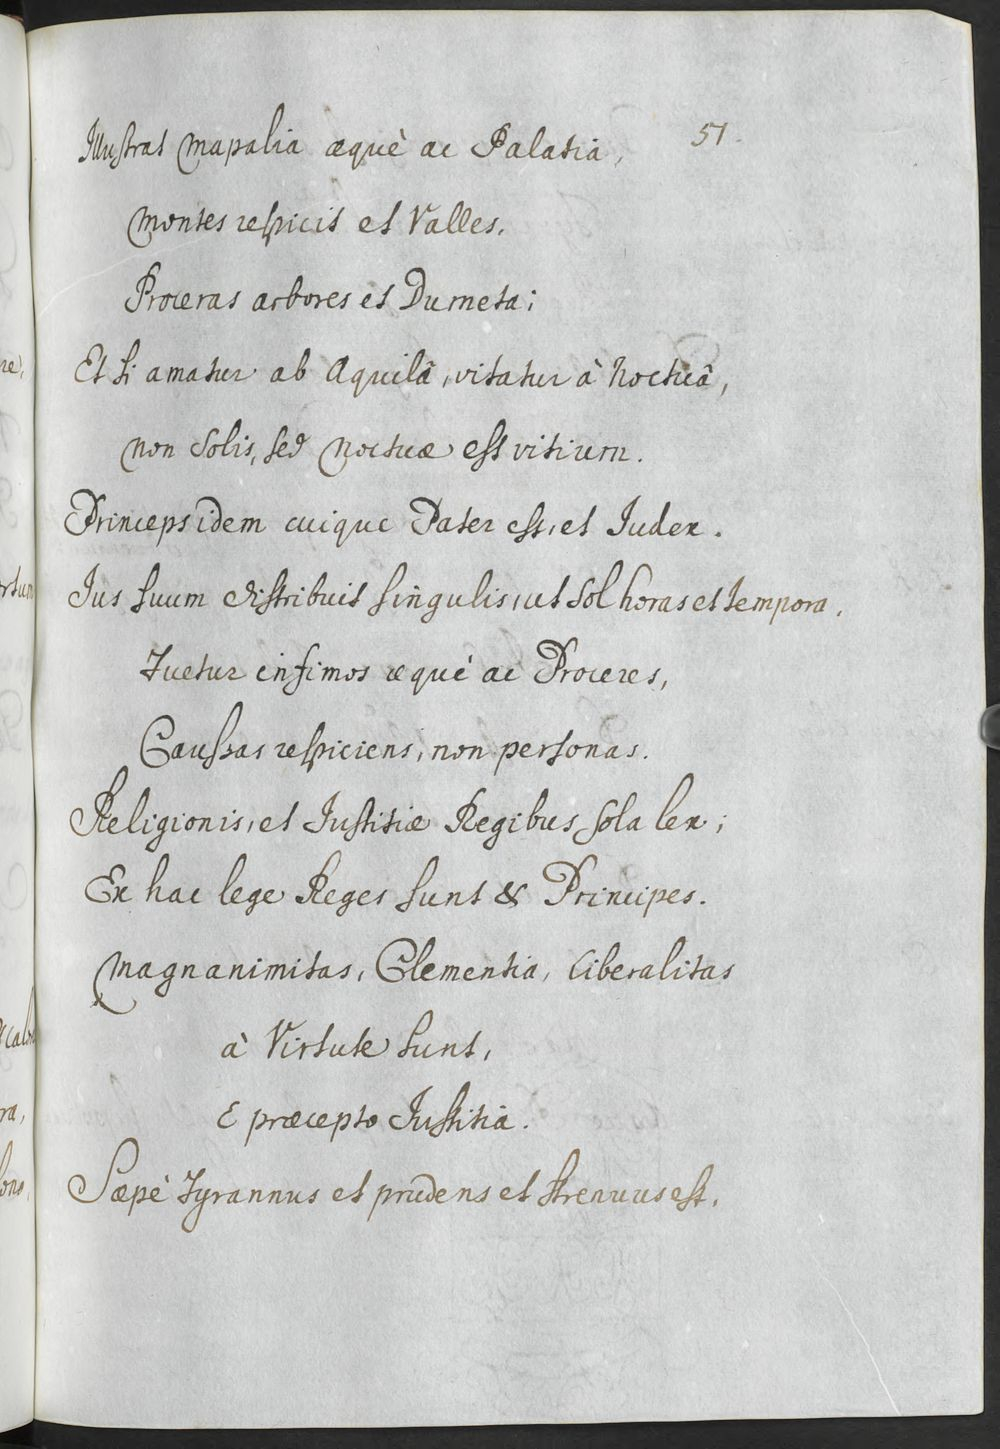 Illustrat mapalia æquè ac Palatia, 51.
montes respicit et Valles,
Proceras arbores et Dumeta;
Et si amatur ab Aquilâ, vitatur à Noctuâ,
non Solis, sed Noctuæ est vitium.
Princeps idem cuique Pater est, et Iudex.
Ius suum distribuit singulis, ut Sol horas et tempora.
Tuetur infimos æquè ac Proceres,
Caussas respiciens, non personas.
Religionis, et Iustitiæ Regibus sola lex;
Ex hac lege Reges sunt & Principes.
Magnanimitas, Clementia, Liberalitas
à Virtute sunt,
E præcepto Iustitia.
Sæpè Tyrannus et prudens et strenuus est,